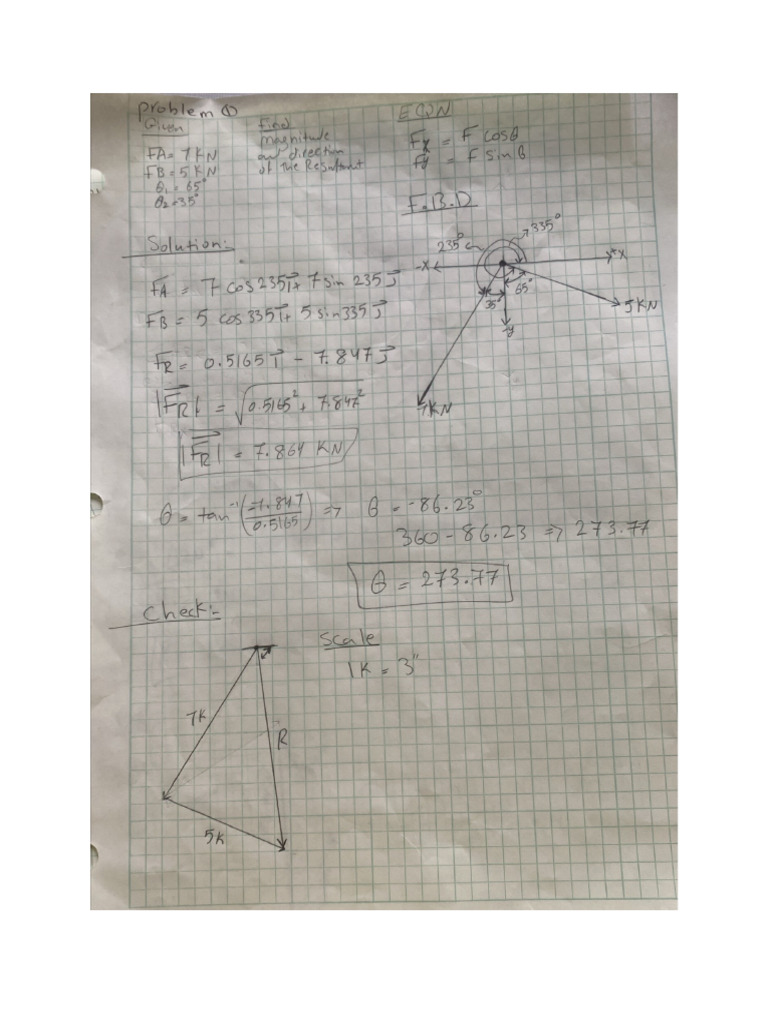 Problem ①
Given
FA = 7 KN
FB = 5 KN
θ₁ = 65°
θ₂ = 35°
Find
magnitude
and direction
of the Resultant
EQN
Fx = F cosθ
Fy = F sinθ
F.B.D
235°
335°
-X
+X
35°
65°
5KN
-y
7KN
Solution:-
FA = 7 cos 235 i + 7 sin 235 J
FB = 5 cos 335 i + 5 sin 335 J
FR = 0.5165 i - 7.847 J
|FR| = √0.5165² + 7.847²
|FR| = 7.864 KN
θ = tan⁻¹(-7.847/0.5165) => θ = -86.23°
360 - 86.23 => 273.77
θ = 273.77
Check:-
Scale
1K = 3"
7K
R
5K